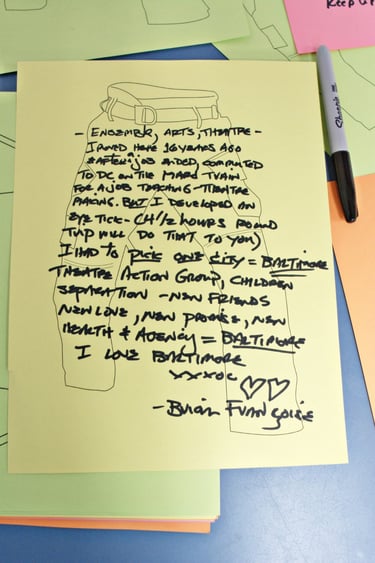 KEEP UP
Sharpie
- ENSEMBLE, ARTS, THEATRE -
I MOVED HERE 16 YEARS AGO
& AFTER A JOB ENDED, COMMUTED
TO DC ON THE MARC TRAIN
FOR A JOB TEACHING THEATRE
MAKING. BUT I DEVELOPED AN
EYE TICK - (4 1/2 HOURS ROUND
TRIP WILL DO THAT TO YOU)
I HAD TO PICK ONE CITY = BALTIMORE
THEATRE ACTION GROUP, CHILDREN
SEPARATION - NEW FRIENDS
NEW LOVE, NEW PROMISE, NEW
HEALTH & AGENCY = BALTIMORE
I LOVE BALTIMORE
XXXOO
- Brian